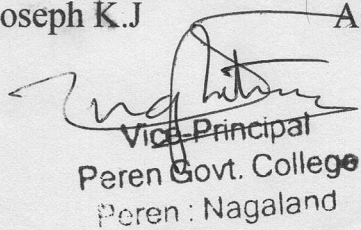 oseph K.J A
Vice-Principal
Peren Govt. College
Peren : Nagaland